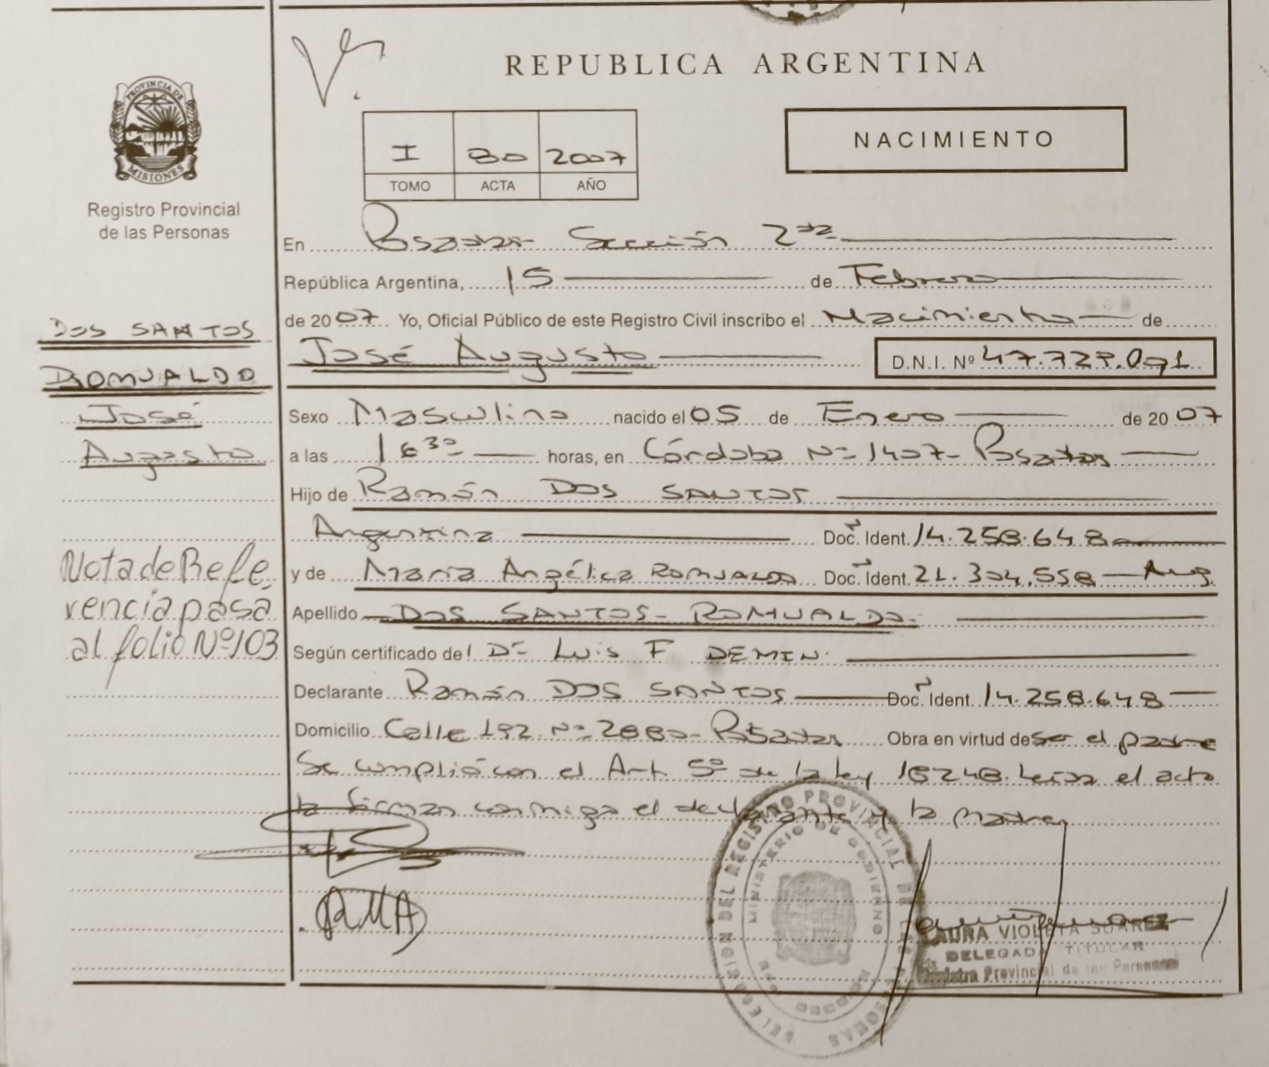 REPUBLICA ARGENTINA
PROVINCIA DE MISIONES
Registro Provincial
de las Personas
I 80 2007
TOMO ACTA AÑO
NACIMIENTO
En Posadas Sección 2da
República Argentina, 15 de Febrero
de 2007 Yo, Oficial Público de este Registro Civil inscribo el Nacimiento de
José Augusto D.N.I. Nº 47.727.091
DOS SANTOS
ROMUALDO
José
Augusto
Sexo Masculino nacido el 05 de Enero de 2007
a las 1630 horas, en Córdoba Nº 1407- Posadas
Hijo de Ramón DOS SANTOS
Argentina Doc. Ident. 14.258.648
y de María Angélica ROMUALDO Doc. Ident. 21.304.558 Arg.
Apellido DOS SANTOS- ROMUALDO.
Según certificado del Dr Luis F. DEMIN.
Declarante Ramón DOS SANTOS Doc. Ident. 14.258.648
Domicilio Calle 192 Nº 2880- Posadas Obra en virtud de ser el padre
Se cumplió con el Art. 5º de la ley 18248. Leída el acta
la firman conmigo el declarante y la madre,
Nota de Refe,
rencia pasa
al folio Nº 103
RMA
DELEGACION DEL REGISTRO PROVINCIAL DE LAS PERSONAS
MINISTERIO DE GOBIERNO
LAURA VIOLETA SUAREZ
DELEGADA TITULAR
Registro Provincial de las Personas